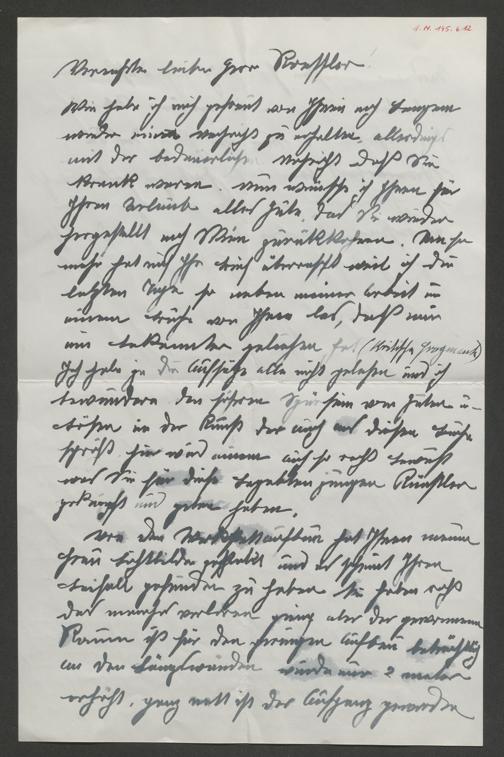 I.N. 195.612
Verehrter lieber Herr Roessler!
Wie habe ich mich gefreut von Ihnen nach langem
wieder einmal Nachricht zu erhalten, allerdings
mit der bedauerlichen Nachricht daß Sie
krank waren. Nun wünsche ich Ihnen für
Ihren Urlaub alles Gute, daß Sie wieder
hergestellt nach Wien zurückkehren. Umso
mehr hat mich Ihr überrascht weil ich die
letzten Tage so neben meiner Arbeit in
einem Buche von Ihnen las, daß mir
ein Bekannter geliehen hat (Kritische Fragmente)
Ich habe ja die Aufsätze alle nicht gelesen und ich
bewundere den sicheren Spürsinn vom Guten u.
bösen in der Kunst der auch aus diesem Buche
spricht. Hier wird einem auch so recht bewußt
was Sie für diese begabten jungen Künstler
gekämpft und getan haben.
Von dem Werkstattaufbau hat Ihnen meine
Frau Lichtbilder geschickt und es scheint Ihren
Beifall gefunden zu haben. Sie haben recht
daß manches verloren ging aber der gewonnene
Raum ist für den geringen Aufbau beträchtlich
an den Längswänden wurde nur 2 Meter
erhöht. ganz nett ist der Aufgang geworden